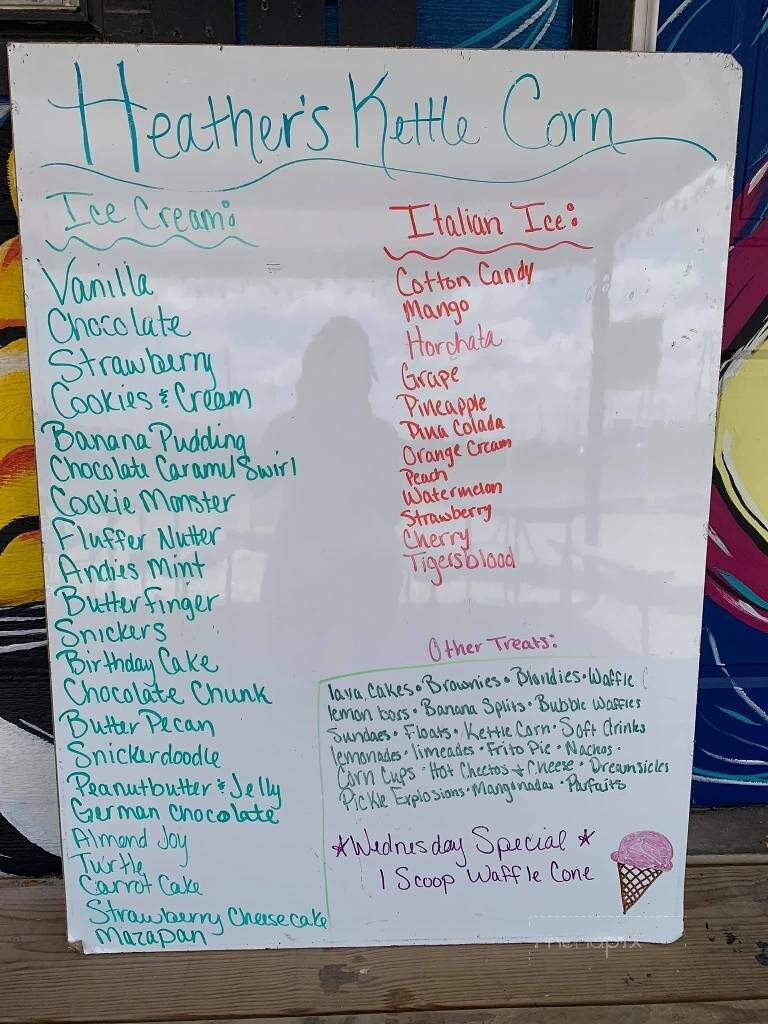 Heather's Kettle Corn
Ice Cream:
Vanilla
Chocolate
Strawberry
Cookies & Cream
Banana Pudding
Chocolate Caramel Swirl
Cookie Monster
Fluffer Nutter
Andies Mint
Butterfinger
Snickers
Birthday Cake
Chocolate Chunk
Butter Pecan
Snickerdoodle
Peanutbutter & Jelly
German Chocolate
Almond Joy
Turtle
Carrot Cake
Strawberry Cheesecake
Mazapan
Italian Ice:
Cotton Candy
Mango
Horchata
Grape
Pineapple
Pina Colada
Orange Cream
Peach
Watermelon
Strawberry
Cherry
Tigersblood
Other Treats:
lava cakes • Brownies • Blondies • Waffle
lemon bars • Banana Splits • Bubble Waffles
Sundaes • Floats • Kettle Corn • Soft drinks
lemonades • limeades • Frito Pie • Nachos •
Corn Cups • Hot Cheetos & Cheese • Dreamsicles
Pickle Explosions • Mangonadas • Parfaits
*Wednesday Special *
1 Scoop Waffle Cone
menupix